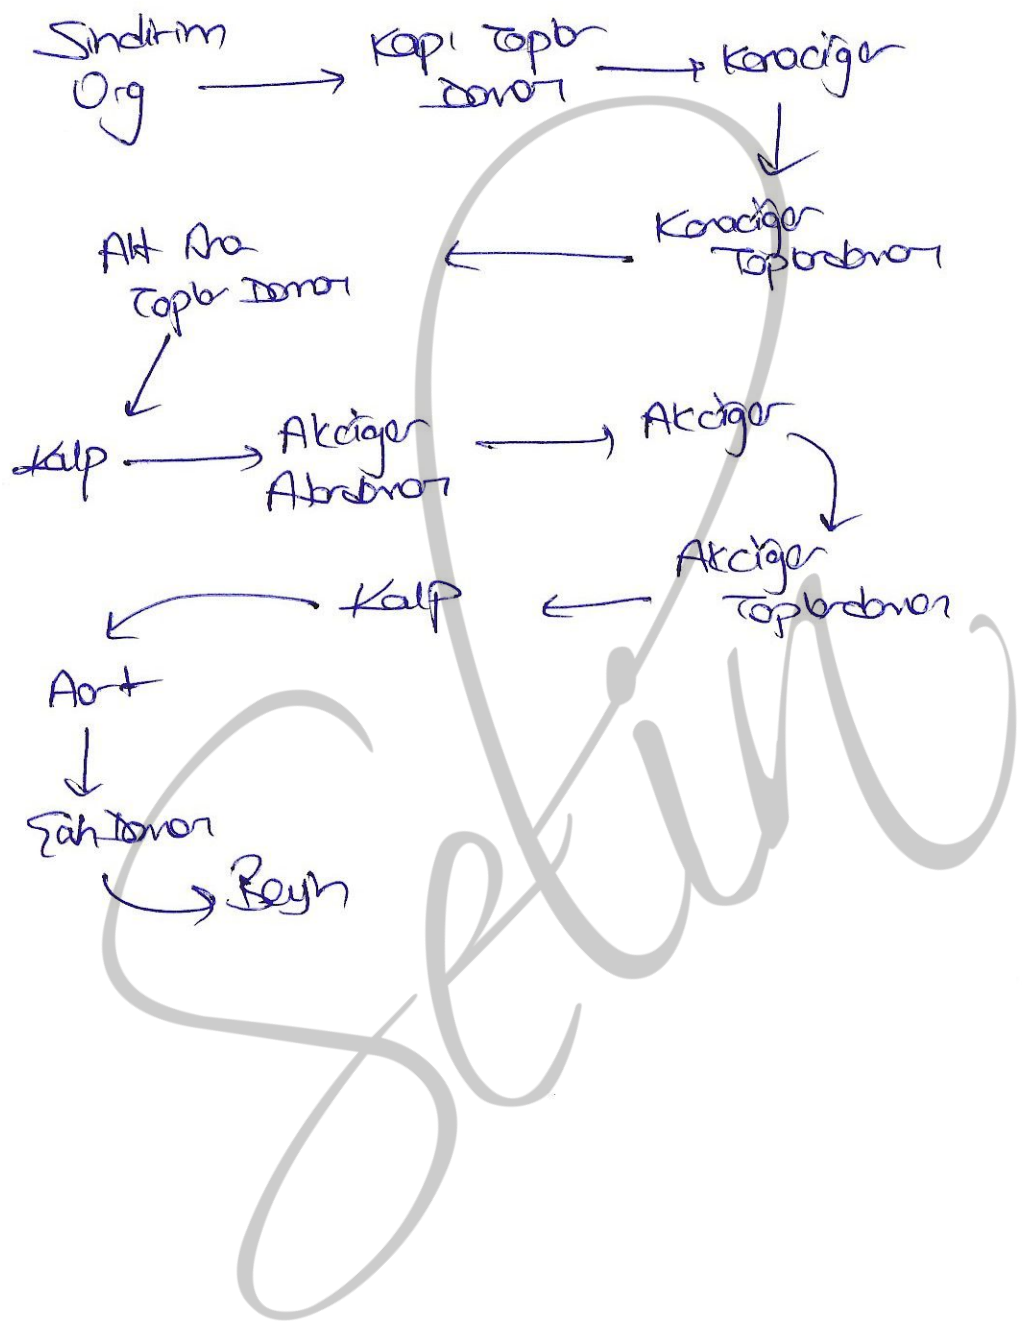 Sindirim
Org
Kapı Toplar
Damar
Karaciğer
Karaciğer
Toplardamar
Alt Ana
Toplar Damar
Kalp
Akciğer
Atardamar
Akciğer
Akciğer
Toplardamar
Kalp
Aort
Şah Damar
Beyin
Selin